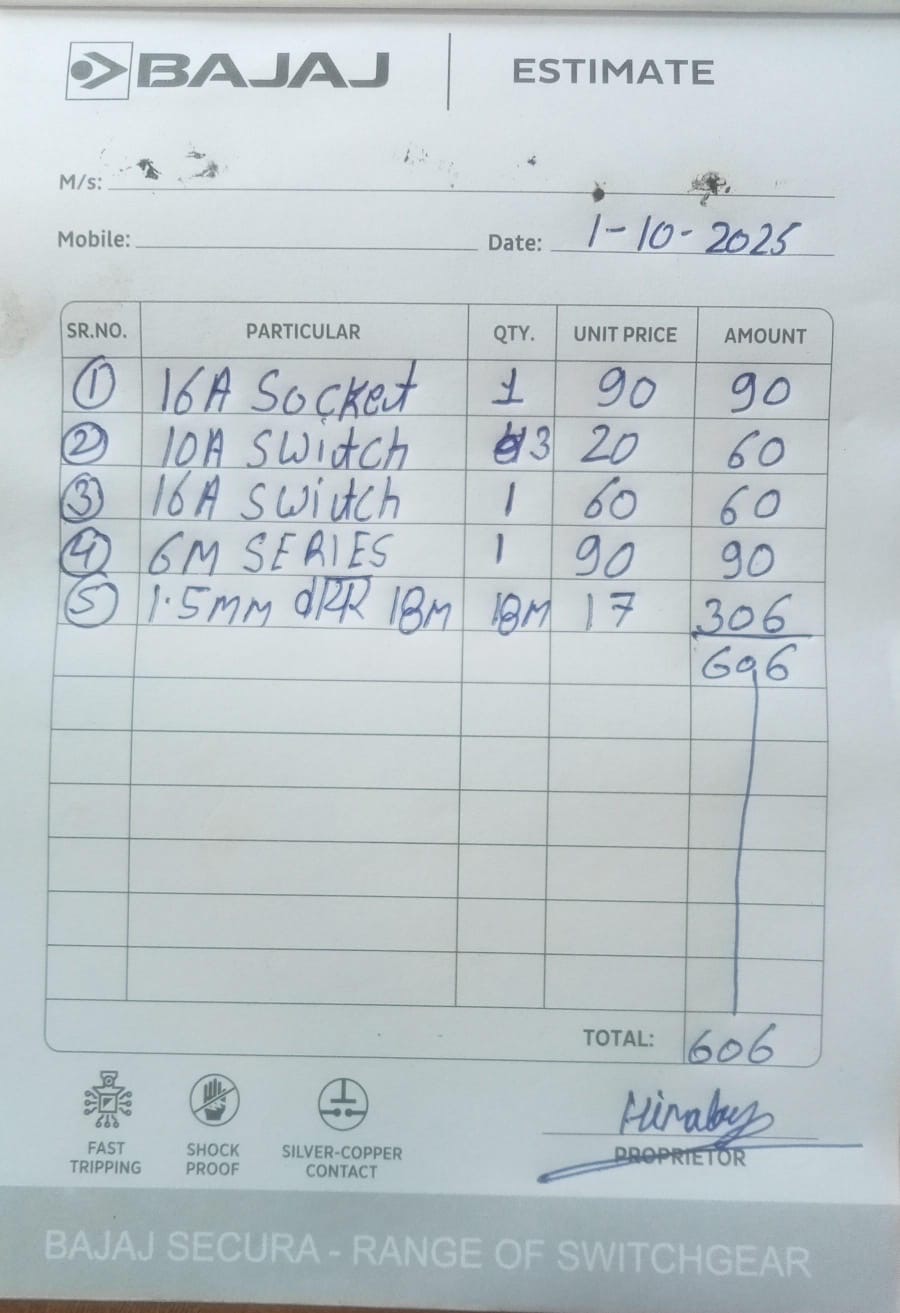 BAJAJ ESTIMATE
M/s:
Mobile: Date: 1-10-2025
SR.NO. PARTICULAR QTY. UNIT PRICE AMOUNT
1 16A Socket 1 90 90
2 10A Switch 3 20 60
3 16A Switch 1 60 60
4 6M SERIES 1 90 90
5 1.5mm 18M 18M 17 306
606
TOTAL: 606
PROPRIETOR
FAST TRIPPING
SHOCK PROOF
SILVER-COPPER CONTACT
BAJAJ SECURA - RANGE OF SWITCHGEAR